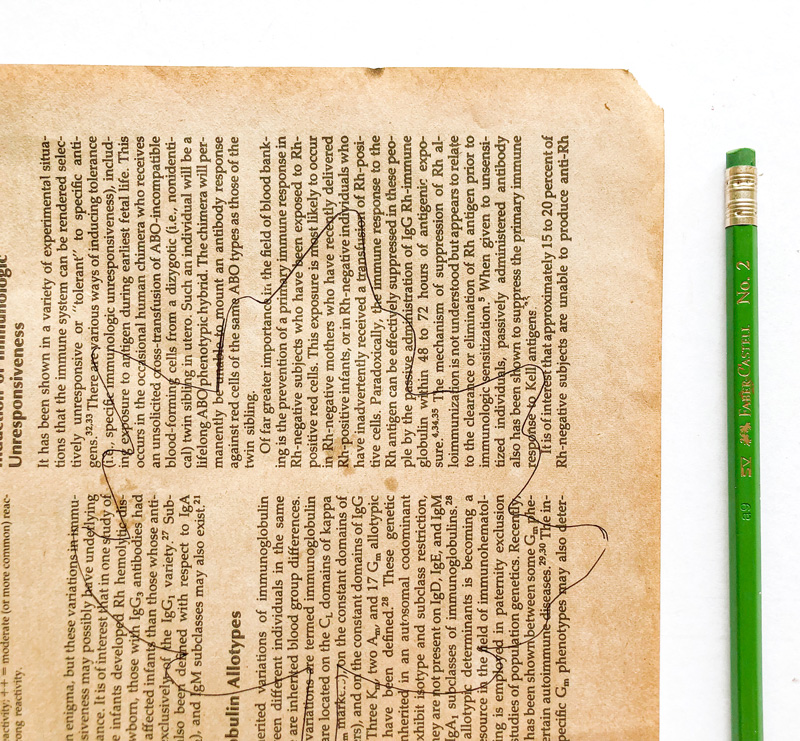 activity; ++ = moderate (or more common) reac-
ong reactivity.
n enigma, but these variations in immu-
siveness may possibly have underlying
ance. It is of interest that in one study of
e infants developed Rh hemolytic dis-
wborn, those with IgG3 antibodies had
affected infants than those whose anti-
exclusively of the IgG1 variety.27 Sub-
lso been defined with respect to IgA
), and IgM subclasses may also exist.21
obulin Allotypes
erited variations of immunoglobulin
een different individuals in the same
are inherited blood group differences.
variations are termed immunoglobulin
are located on the CL domains of kappa
m mark), on the constant domains of
ers), and on the constant domains of IgG
Three Km, two Am, and 17 Gm allotypic
have been defined.28 These genetic
nherited in an autosomal codominant
xhibit isotype and subclass restriction,
hey are not present on IgD, IgE, and IgM
IgA1 subclasses of immunoglobulins.28
allotypic determinants is becoming a
esource in the field of immunohematol-
ng is employed in paternity exclusion
studies of population genetics. Recently,
has been shown between some Gm phe-
ertain autoimmune diseases.29,30 The in-
pecific Gm phenotypes may also deter-
Induction of Immunologic
Unresponsiveness
It has been shown in a variety of experimental situa-
tions that the immune system can be rendered selec-
tively unresponsive or “tolerant” to specific anti-
gens.32,33 There are various ways of inducing tolerance
(i.e., specific immunologic unresponsiveness), includ-
ing exposure to antigen during earliest fetal life. This
occurs in the occasional human chimera who receives
an unsolicited cross-transfusion of ABO-incompatible
blood-forming cells from a dizygotic (i.e., nonidenti-
cal) twin sibling in utero. Such an individual will be a
lifelong ABO phenotypic hybrid. The chimera will per-
manently be unable to mount an antibody response
against red cells of the same ABO types as those of the
twin sibling.
Of far greater importance in the field of blood bank-
ing is the prevention of a primary immune response in
Rh-negative subjects who have been exposed to Rh-
positive red cells. This exposure is most likely to occur
in Rh-negative mothers who have recently delivered
Rh-positive infants, or in Rh-negative individuals who
have inadvertently received a transfusion of Rh-posi-
tive cells. Paradoxically, the immune response to the
Rh antigen can be effectively suppressed in these peo-
ple by the passive administration of IgG Rh-immune
globulin within 48 to 72 hours of antigenic expo-
sure.4,34,35 The mechanism of suppression of Rh al-
loimmunization is not understood but appears to relate
to the clearance or elimination of Rh antigen prior to
immunologic sensitization.5 When given to unsensi-
tized individuals, passively administered antibody
also has been shown to suppress the primary immune
response to Kell antigens.
It is of interest that approximately 15 to 20 percent of
Rh-negative subjects are unable to produce anti-Rh
69 SV FABER CASTELL No. 2